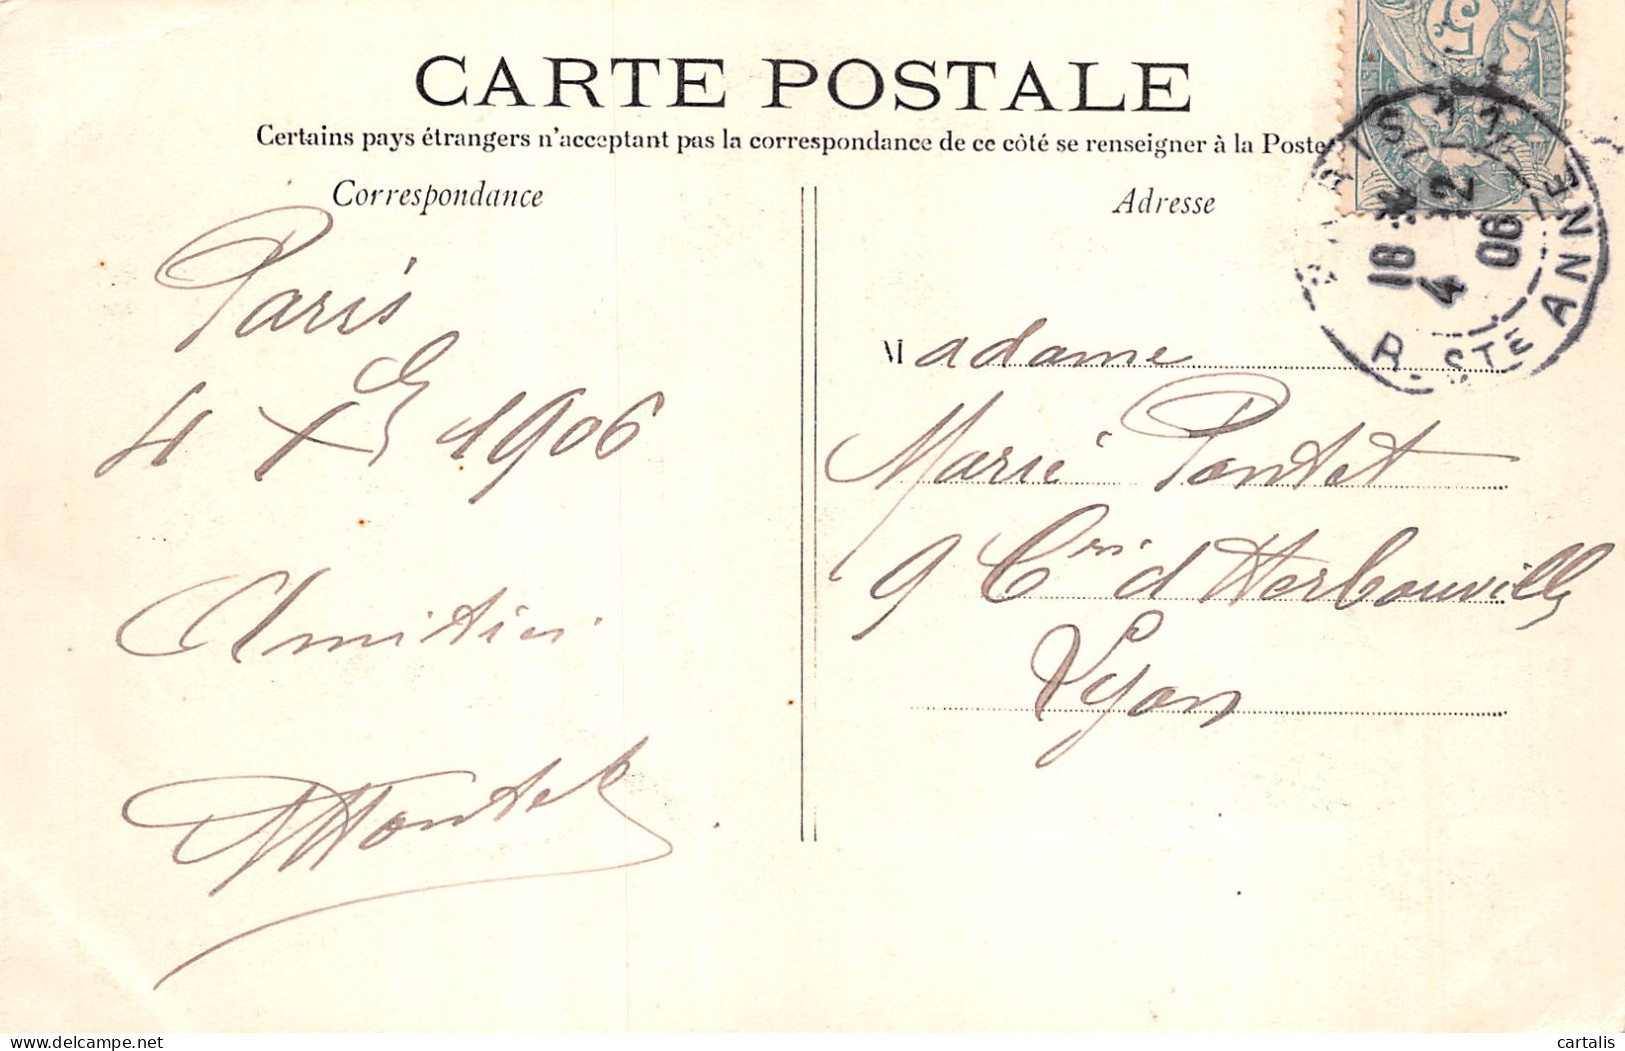 CARTE POSTALE
Certains pays étrangers n'acceptant pas la correspondance de ce côté se renseigner à la Poste
Correspondance
Adresse
Paris
4 Xbre 1906
Amitiés
Madame
Marie Pontet
9 Crs d'Herbouville
Lyon
5
PARIS
18
4
12
06
R. STE ANNE
www.delcampe.net
cartalis